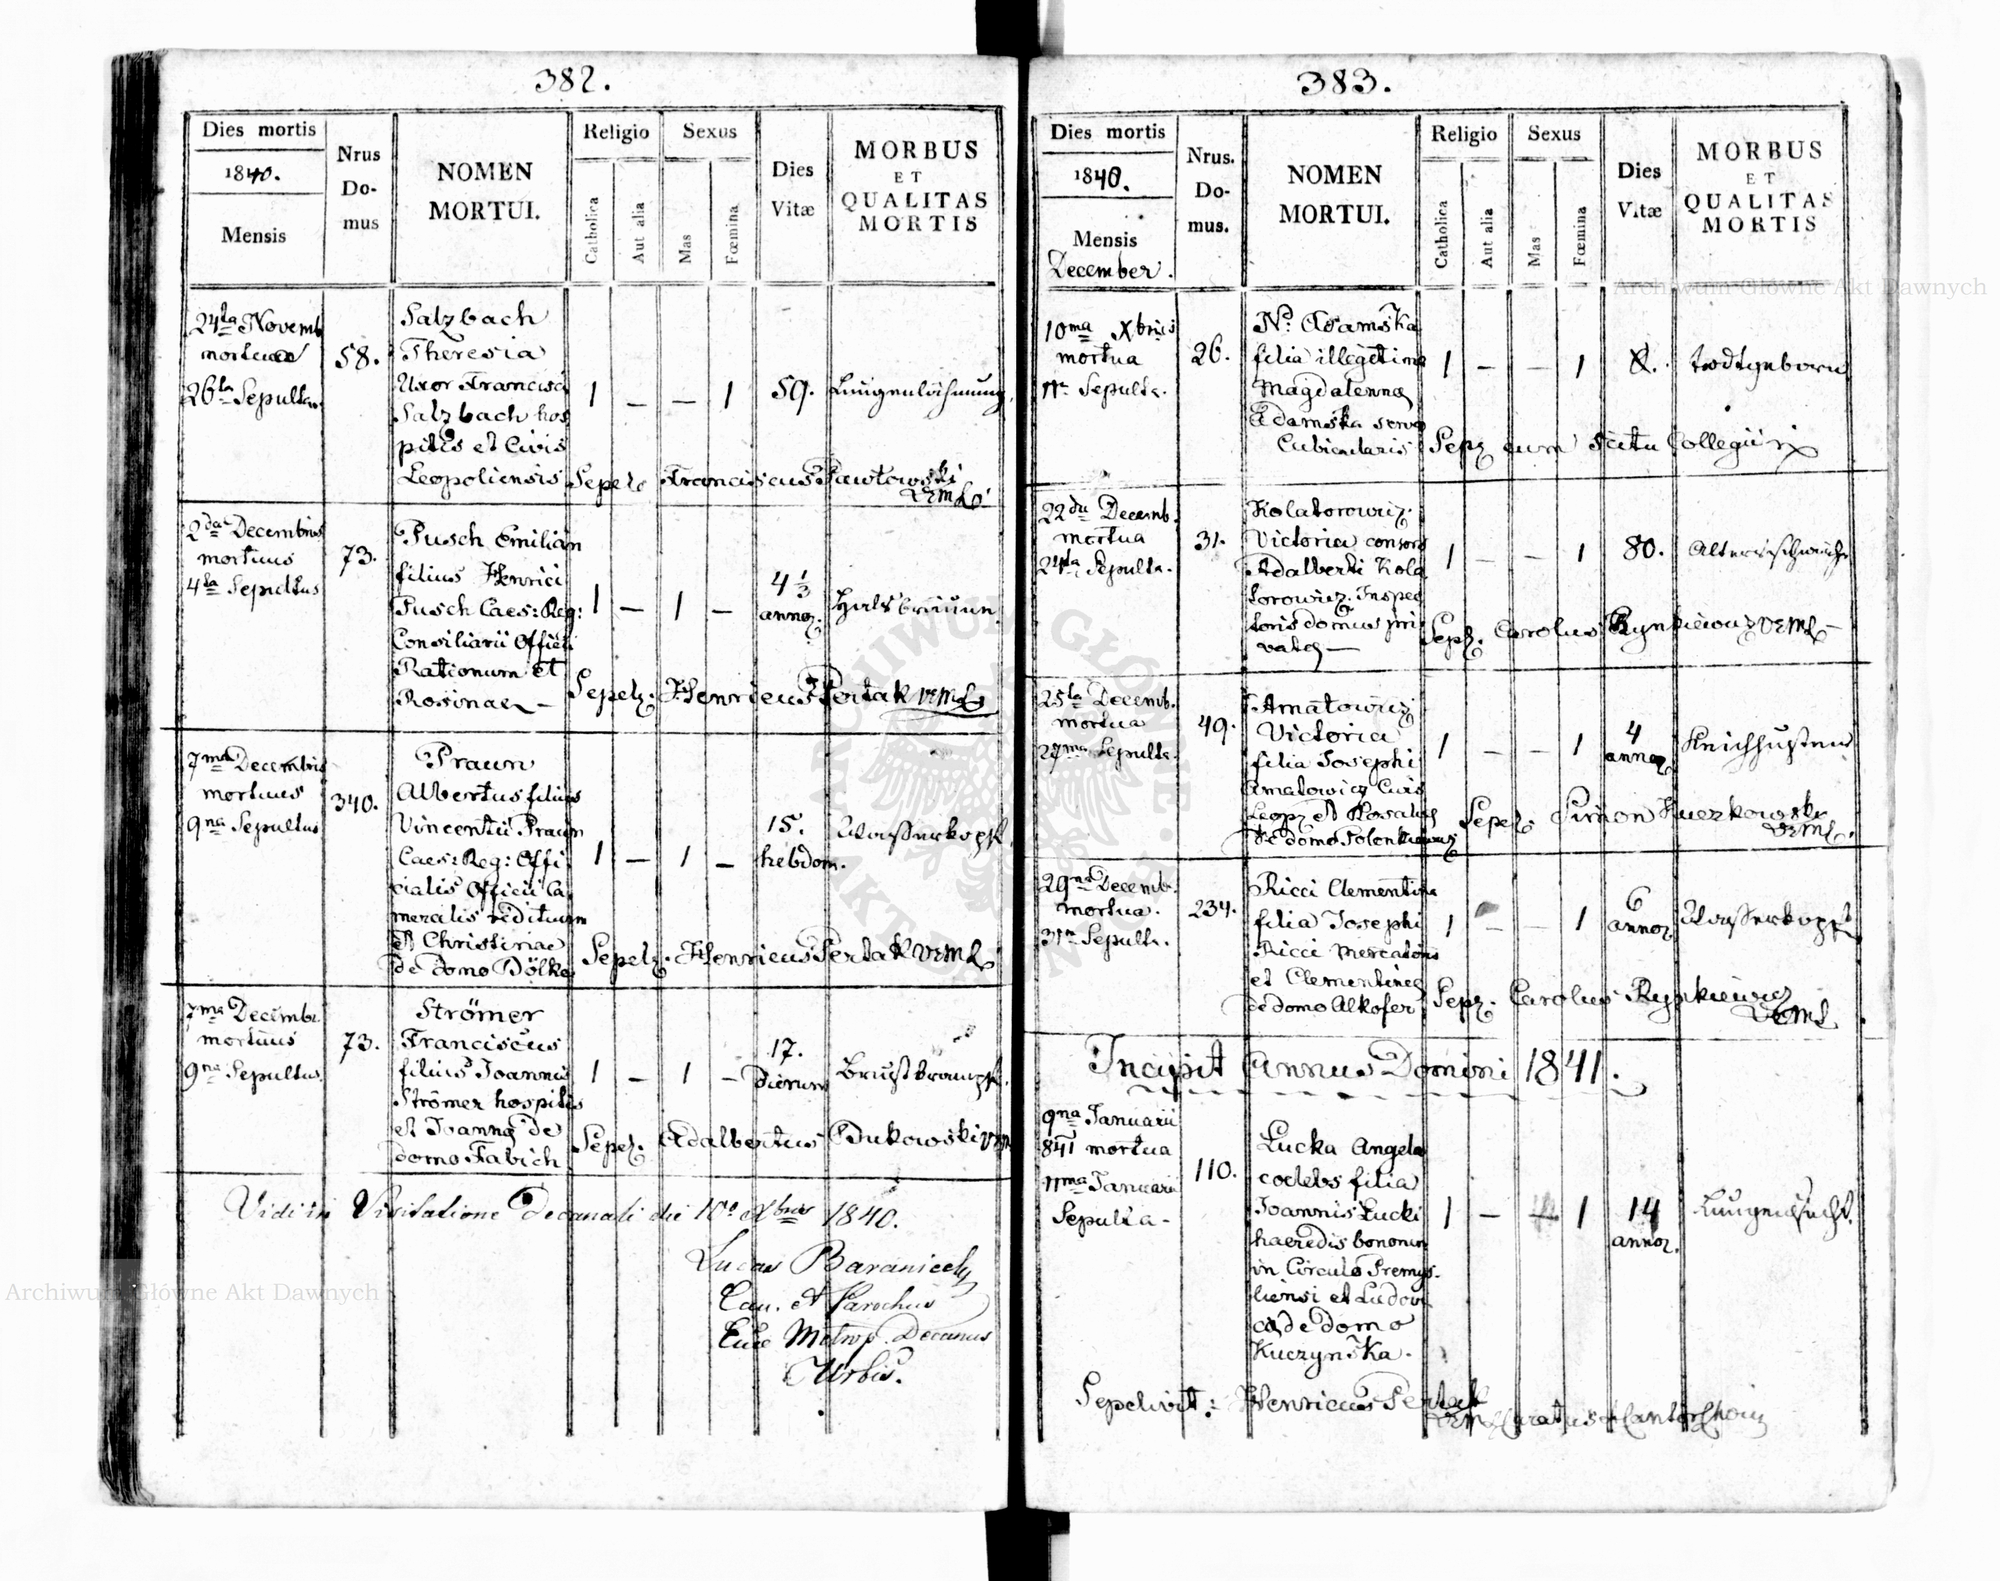 382.
Dies mortis
1840.
Mensis
Nrus
Do-
mus
NOMEN
MORTUI.
Religio
Catholica
Aut alia
Sexus
Mas
Fœmina
Dies
Vitæ
MORBUS
ET
QUALITAS
MORTIS
24ta Novemb
mortua
26ta Sepulta
58.
Salzbach
Theresia
Uxor Francisci
Salzbach hos
pitis et Civis
Leopoliensis
1 — — 1
59.
Lungenlähmung
Sepel: Franciscus Pawłowski
VCML
2da Decembris
mortuus
4ta Sepultus
73.
Pusch Emilian
filius Henrici
Pusch Caes: Reg:
Consiliarii Officii
Rationum et
Rosinae —
1 — 1 —
4 1/3
annor.
Halsbräune
Sepel: Henricus Pertak VCML
7ma Decembris
mortuus
9na Sepultus
340.
Praun
Albertus filius
Vincentii Praun
Caes: Reg: Offi
cialis Officii Ca
meralis redituum
et Christinae
de domo Dölke
1 — 1 —
15.
hebdom.
Wasserkopf
Sepel: Henricus Pertak VCML
7ma Decembr.
mortuus
9na Sepultus.
73.
Strömer
Franciscus
filius Joannis
Strömer hospitis
et Joanna de
domo Fabich
1 — 1 —
17.
dierum
Brustkrampf.
Sepel: Adalbertus Bukowski
Vidi in Visitatione Decanali die 10a Xbris 1840.
Lucas Baraniecki
Can. et Parochus
Ecc Metrop. Decanus
Urbis.
383.
Dies mortis
1840.
Mensis
December.
Nrus.
Do-
mus.
NOMEN
MORTUI.
Religio
Catholica
Aut alia
Sexus
Mas
Fœmina
Dies
Vitæ
MORBUS
ET
QUALITAS
MORTIS
10ma Xbris
mortua
11a Sepulta.
26.
N: Adamska
filia illegitima
Magdalenna
Adamska serva
Cubicularis
1 — — 1
todtgeborn
Sepel: cum scitu Collegii
22da Decemb.
mortua
24ta Sepulta.
31.
Kolatorowicz
Victoria consors
Adalberti Kola
torowicz Inspec
toris domus pri
vatae —
1 — — 1
80.
Altersschwäche
Sepel. Carolus Rynkiewicz VCML
25ta Decemb.
mortua
27ma Sepulta.
49.
Amatowicz
Victoria
filia Josephi
Amatowicz Civis
Leop: et Rosalia
de domo
1 — — 1
4
annor
Keichhusten
Sepel. Simon Kuczkowski
VCML.
29na Decemb.
mortua.
31a Sepulta.
234.
Ricci Clementina
filia Josephi
Ricci Mercatoris
et Clementinae
de domo Alkofer
1 — — 1
6
annor
Wasserkopf
Sepel. Carolus Rynkiewicz
VCML
Incipit Annus Domini 1841.
9na Januarii
841 mortua
11ma Januarii
Sepulta —
110.
Lucka Angela
coelebs filia
Joannis Lucki
haeredis bonorum
in Circulo Premys-
liensi et Ludovi
ca de domo
Kuczyńska.
1 — 1
14
annor.
Lungensucht.
Sepelivit: Henricus Pertak
VCML Curatus
Archiwum Główne Akt Dawnych
Archiwum Główne Akt Dawnych
ARCHIWUM GŁÓWNE AKT DAWNYCH